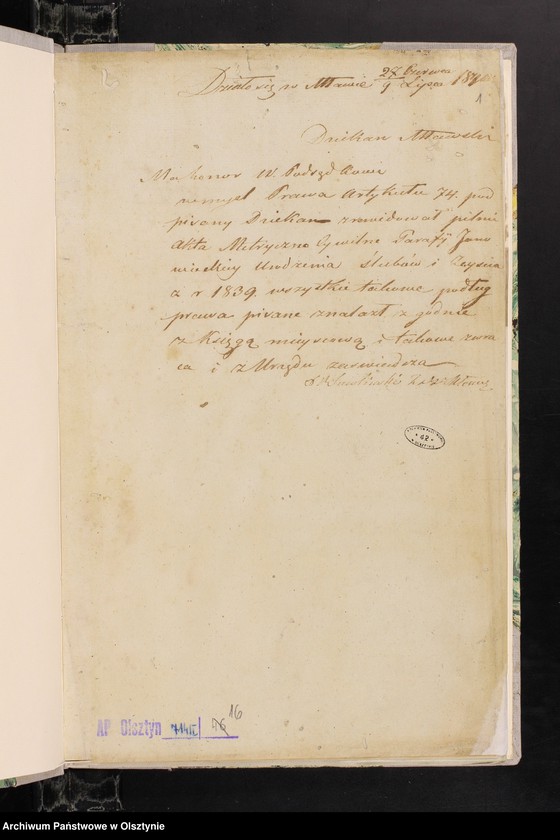 Działo się w Mławie 28 Czerwca / 9 Lipca 1840
1
Dziekan Mławski
Ma honor W. Podsęd
nemysl Prawa Artykułu 74. pod
pisany Dziekan zrewidował pilnie
Akta Metryczno Cywilne Parafij Jano
wieckiey Urodzenia Ślubów i Zeyścia
z r 1839. wszystkie takowe podług
prawa pisane znalazł z godnie
z Księgą mieyscową i takowe zwra
ca i z Urzędu zaświadcza
62
AP Olsztyn
16
Archiwum Państwowe w Olsztynie